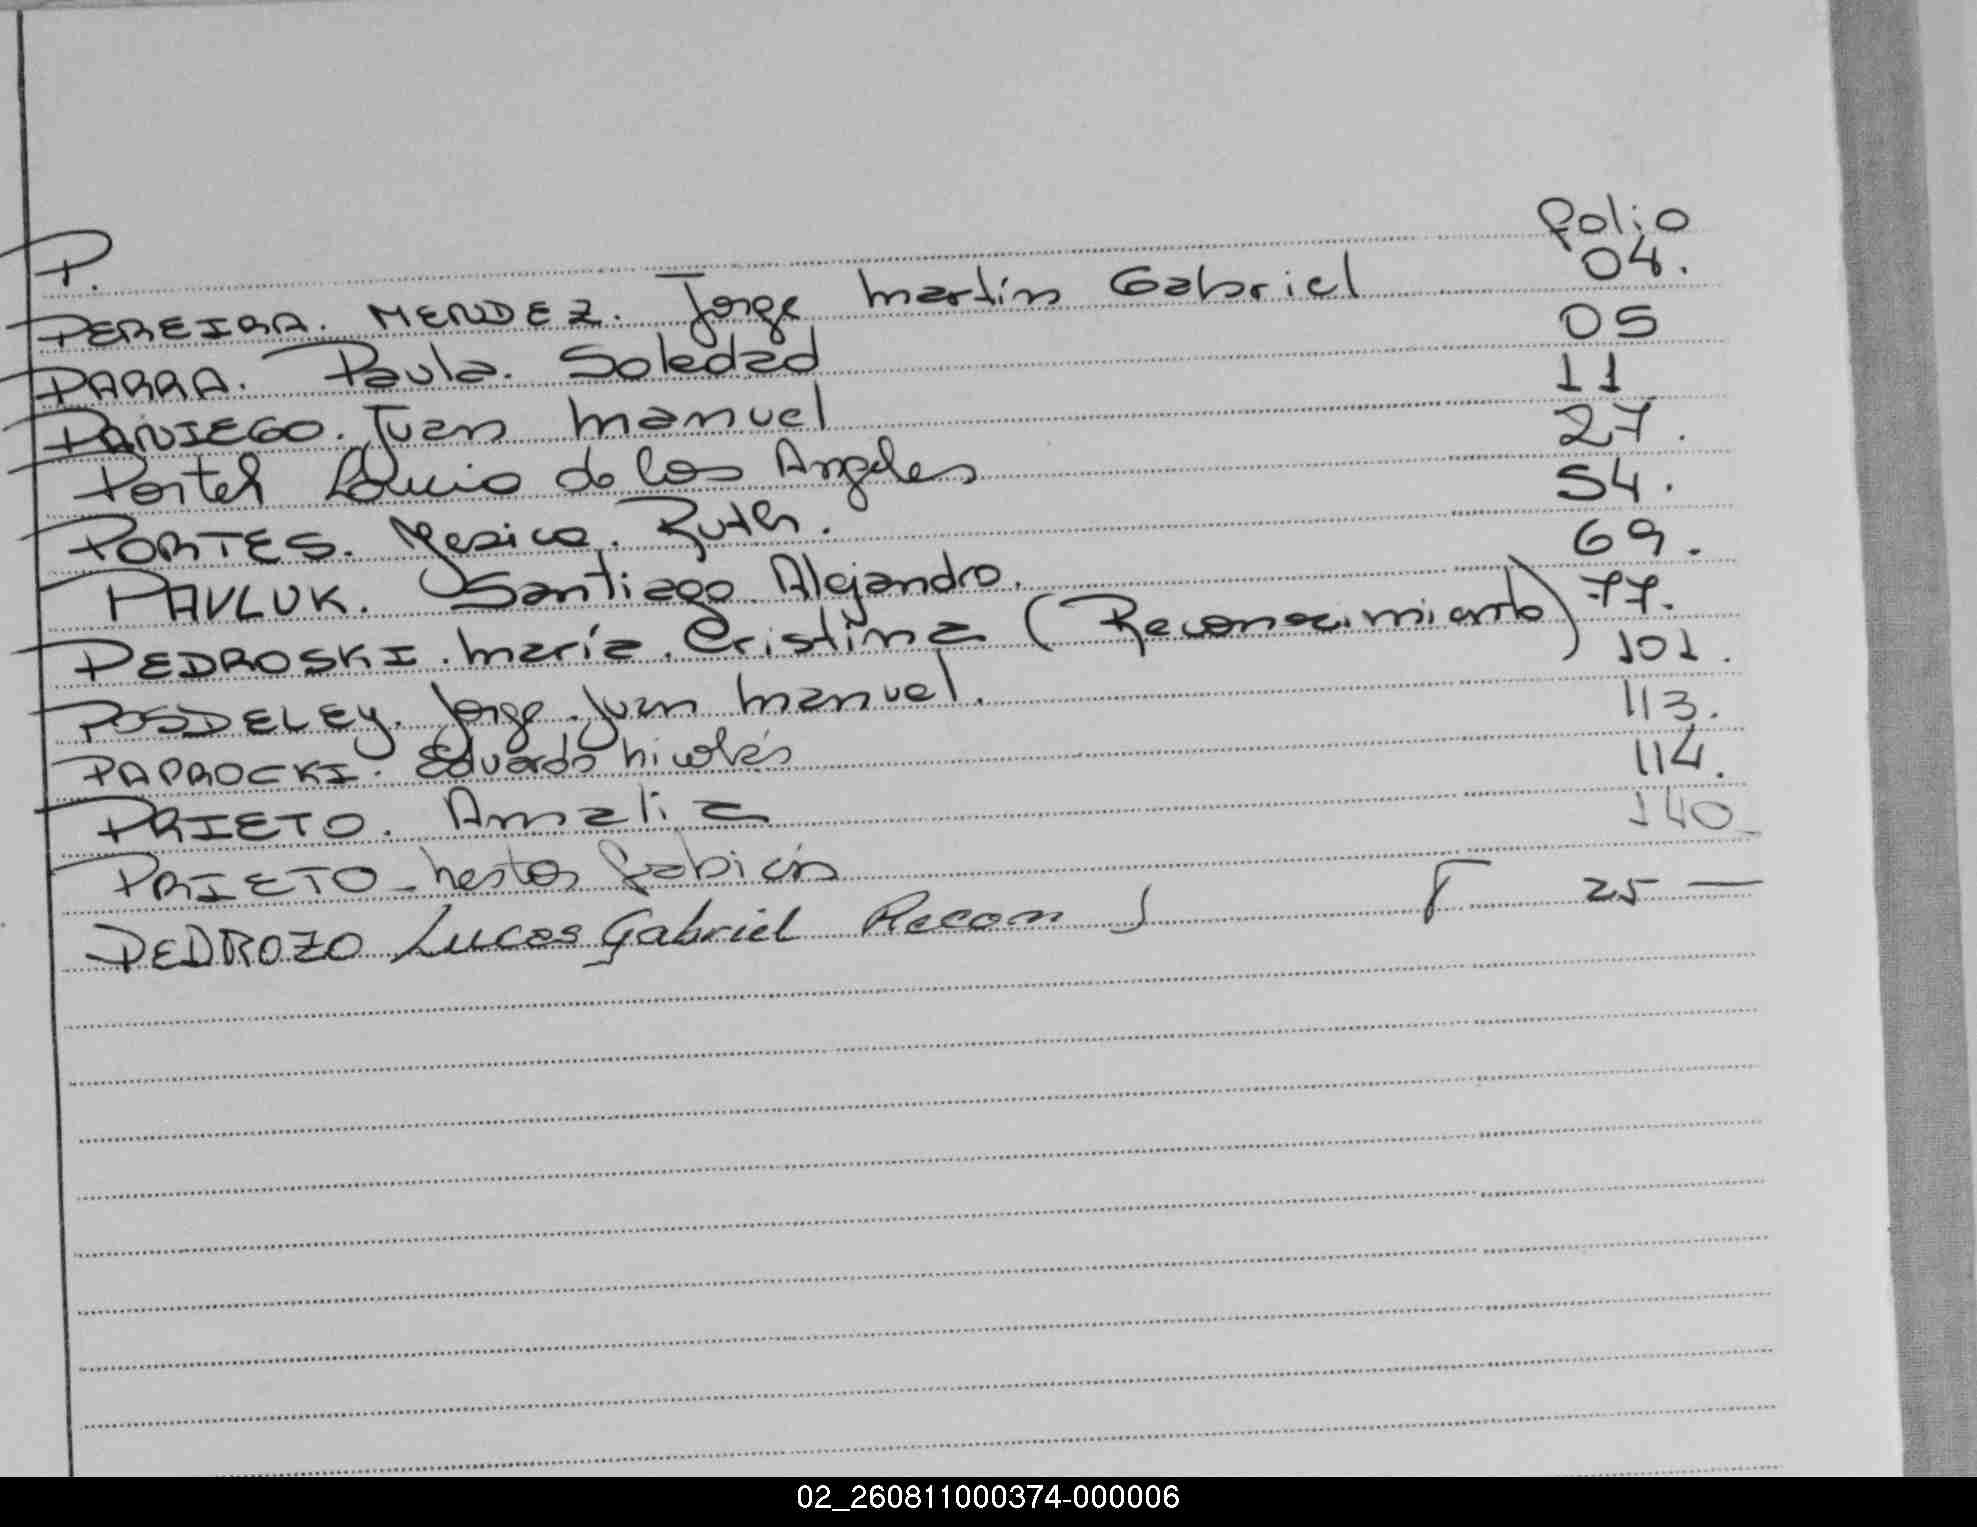 P. folio
PEREIRA. MENDEZ. Jorge Martín Gabriel 04.
PARRA. Paula. Soledad 05
PANIEGO. Juan Manuel 11
Portel de los Angeles 27.
PORTES. Yesica. Ruth. 54.
PAVLUK. Santiago Alejandro. 69.
PEDROSKI. María. Cristina (Reconocimiento) 77.
POSDELEY. Jorge. Juan Manuel. 101.
PAPROCKI. Eduardo Nicolás 113.
PRIETO. Amalia 114.
PRIETO - Nestor Fabián 140
PEDROZO Lucas Gabriel Recon J F 25 —
02_260811000374-000006